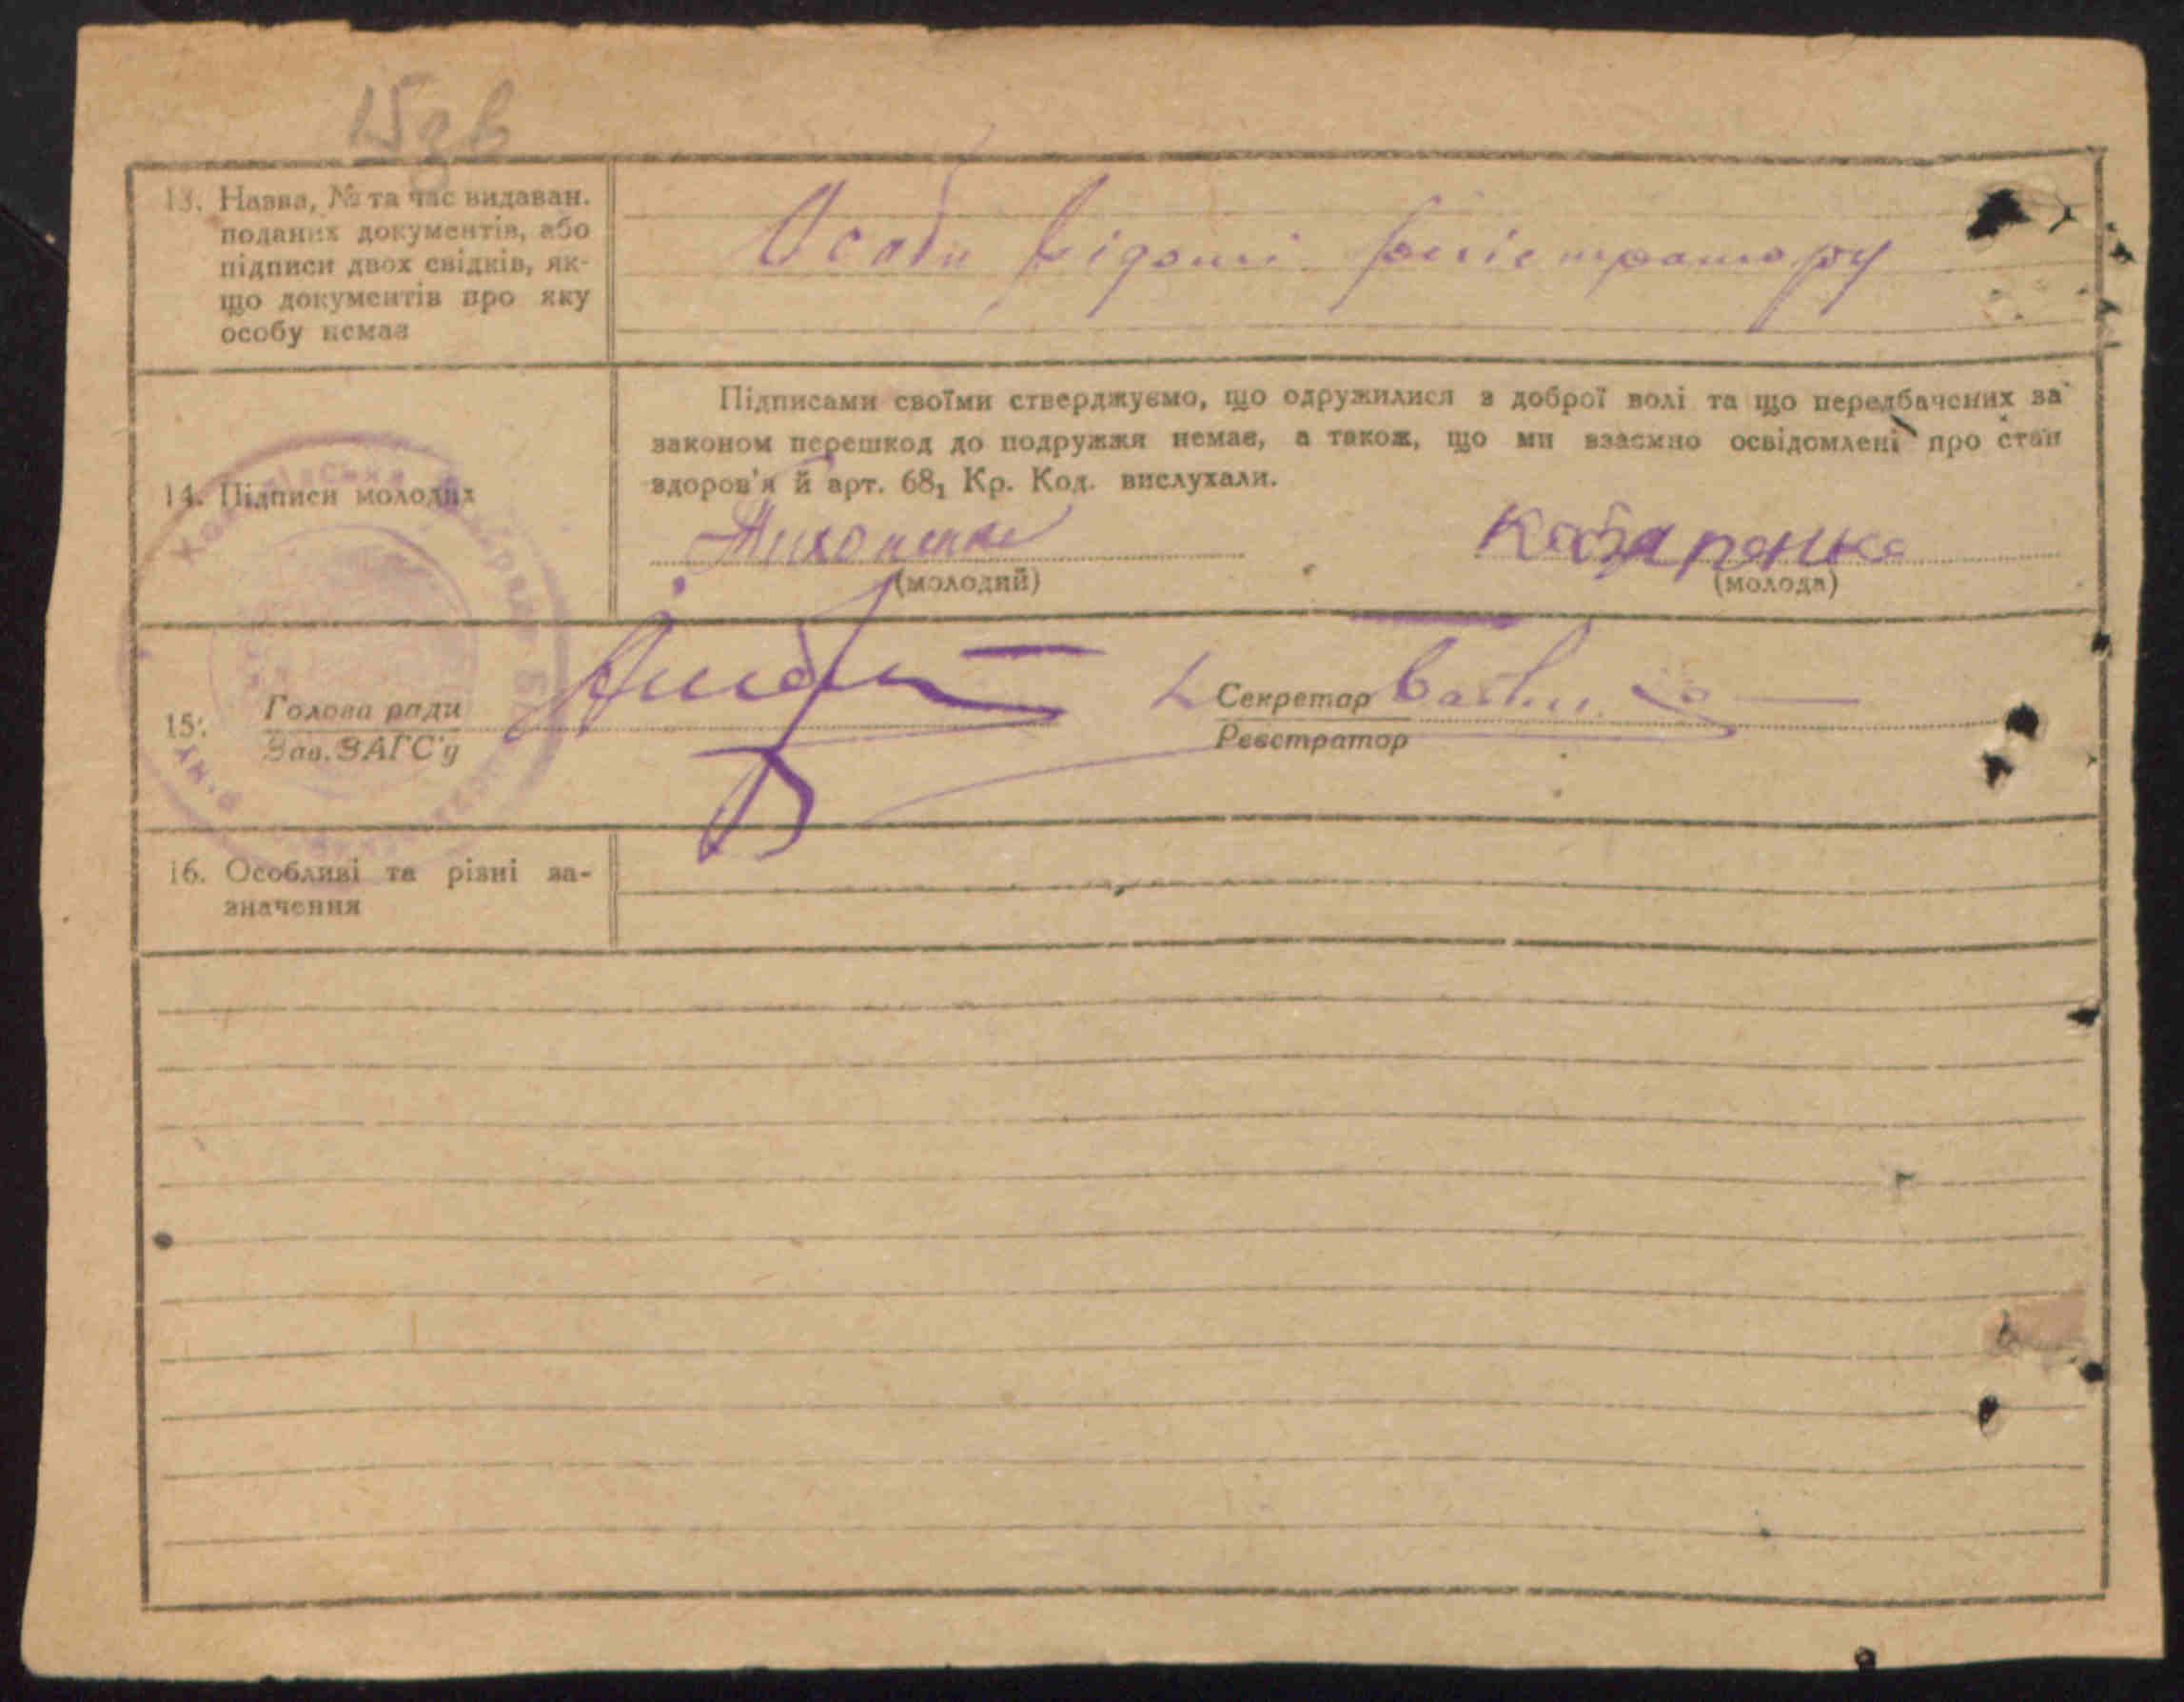 15зв
13. Назва, № та час видаван.
поданих документів, або
підписи двох свідків, як-
що документів про яку
особу немає
Особи відомі реєстратору
Підписами своїми стверджуємо, що одружилися з доброї волі та що передбачених за
законом перешкод до подружжя немає, а також, що ми взаємно освідомлені про стан
здоров'я й арт. 68₁ Кр. Код. вислухали.
14. Підписи молодих
(молодий)
(молода)
15. Голова ради
Зав. ЗАГС'у
Секретар
Реєстратор
16. Особливі та різні за-
значення